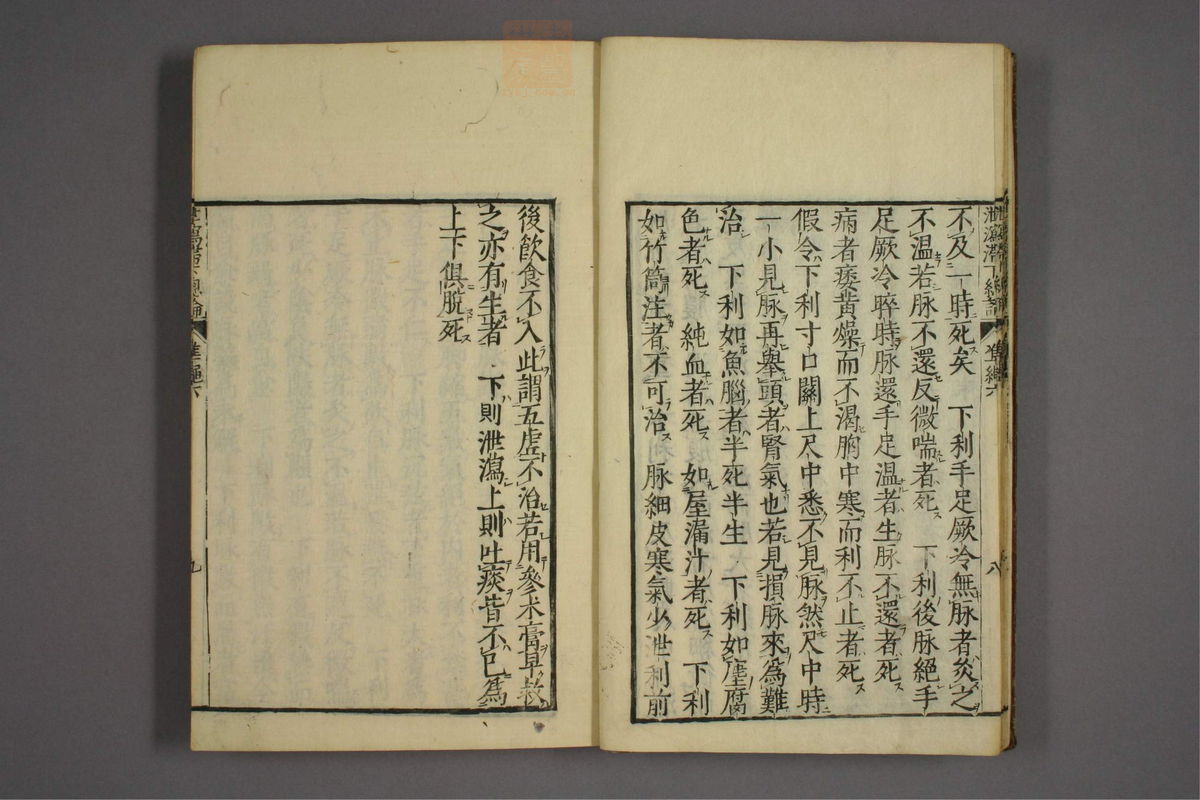 不及一時死矣　下利手足厥冷無脉者灸之
不温若脉不還反微喘者死　下利後脉絕手
足厥冷晬時脉還手足温者生脉不還者死
病者痿黄燥而不渴胸中寒而利不止者死
假令下利寸口關上尺中悉不見脉然尺中時
一小見脉再舉頭者腎氣也若見損脉來爲難
治　下利如魚腦者半死半生　下利如塵腐
色者死　純血者死　如屋漏汁者死　下利
如竹筒注者不可治　脉細皮寒氣少泄利前
八
後飲食不入此謂五虛不治若用參朮膏早救
之亦有生者　下則泄瀉上則吐痰皆不已爲
上下俱脫死
準繩六
九